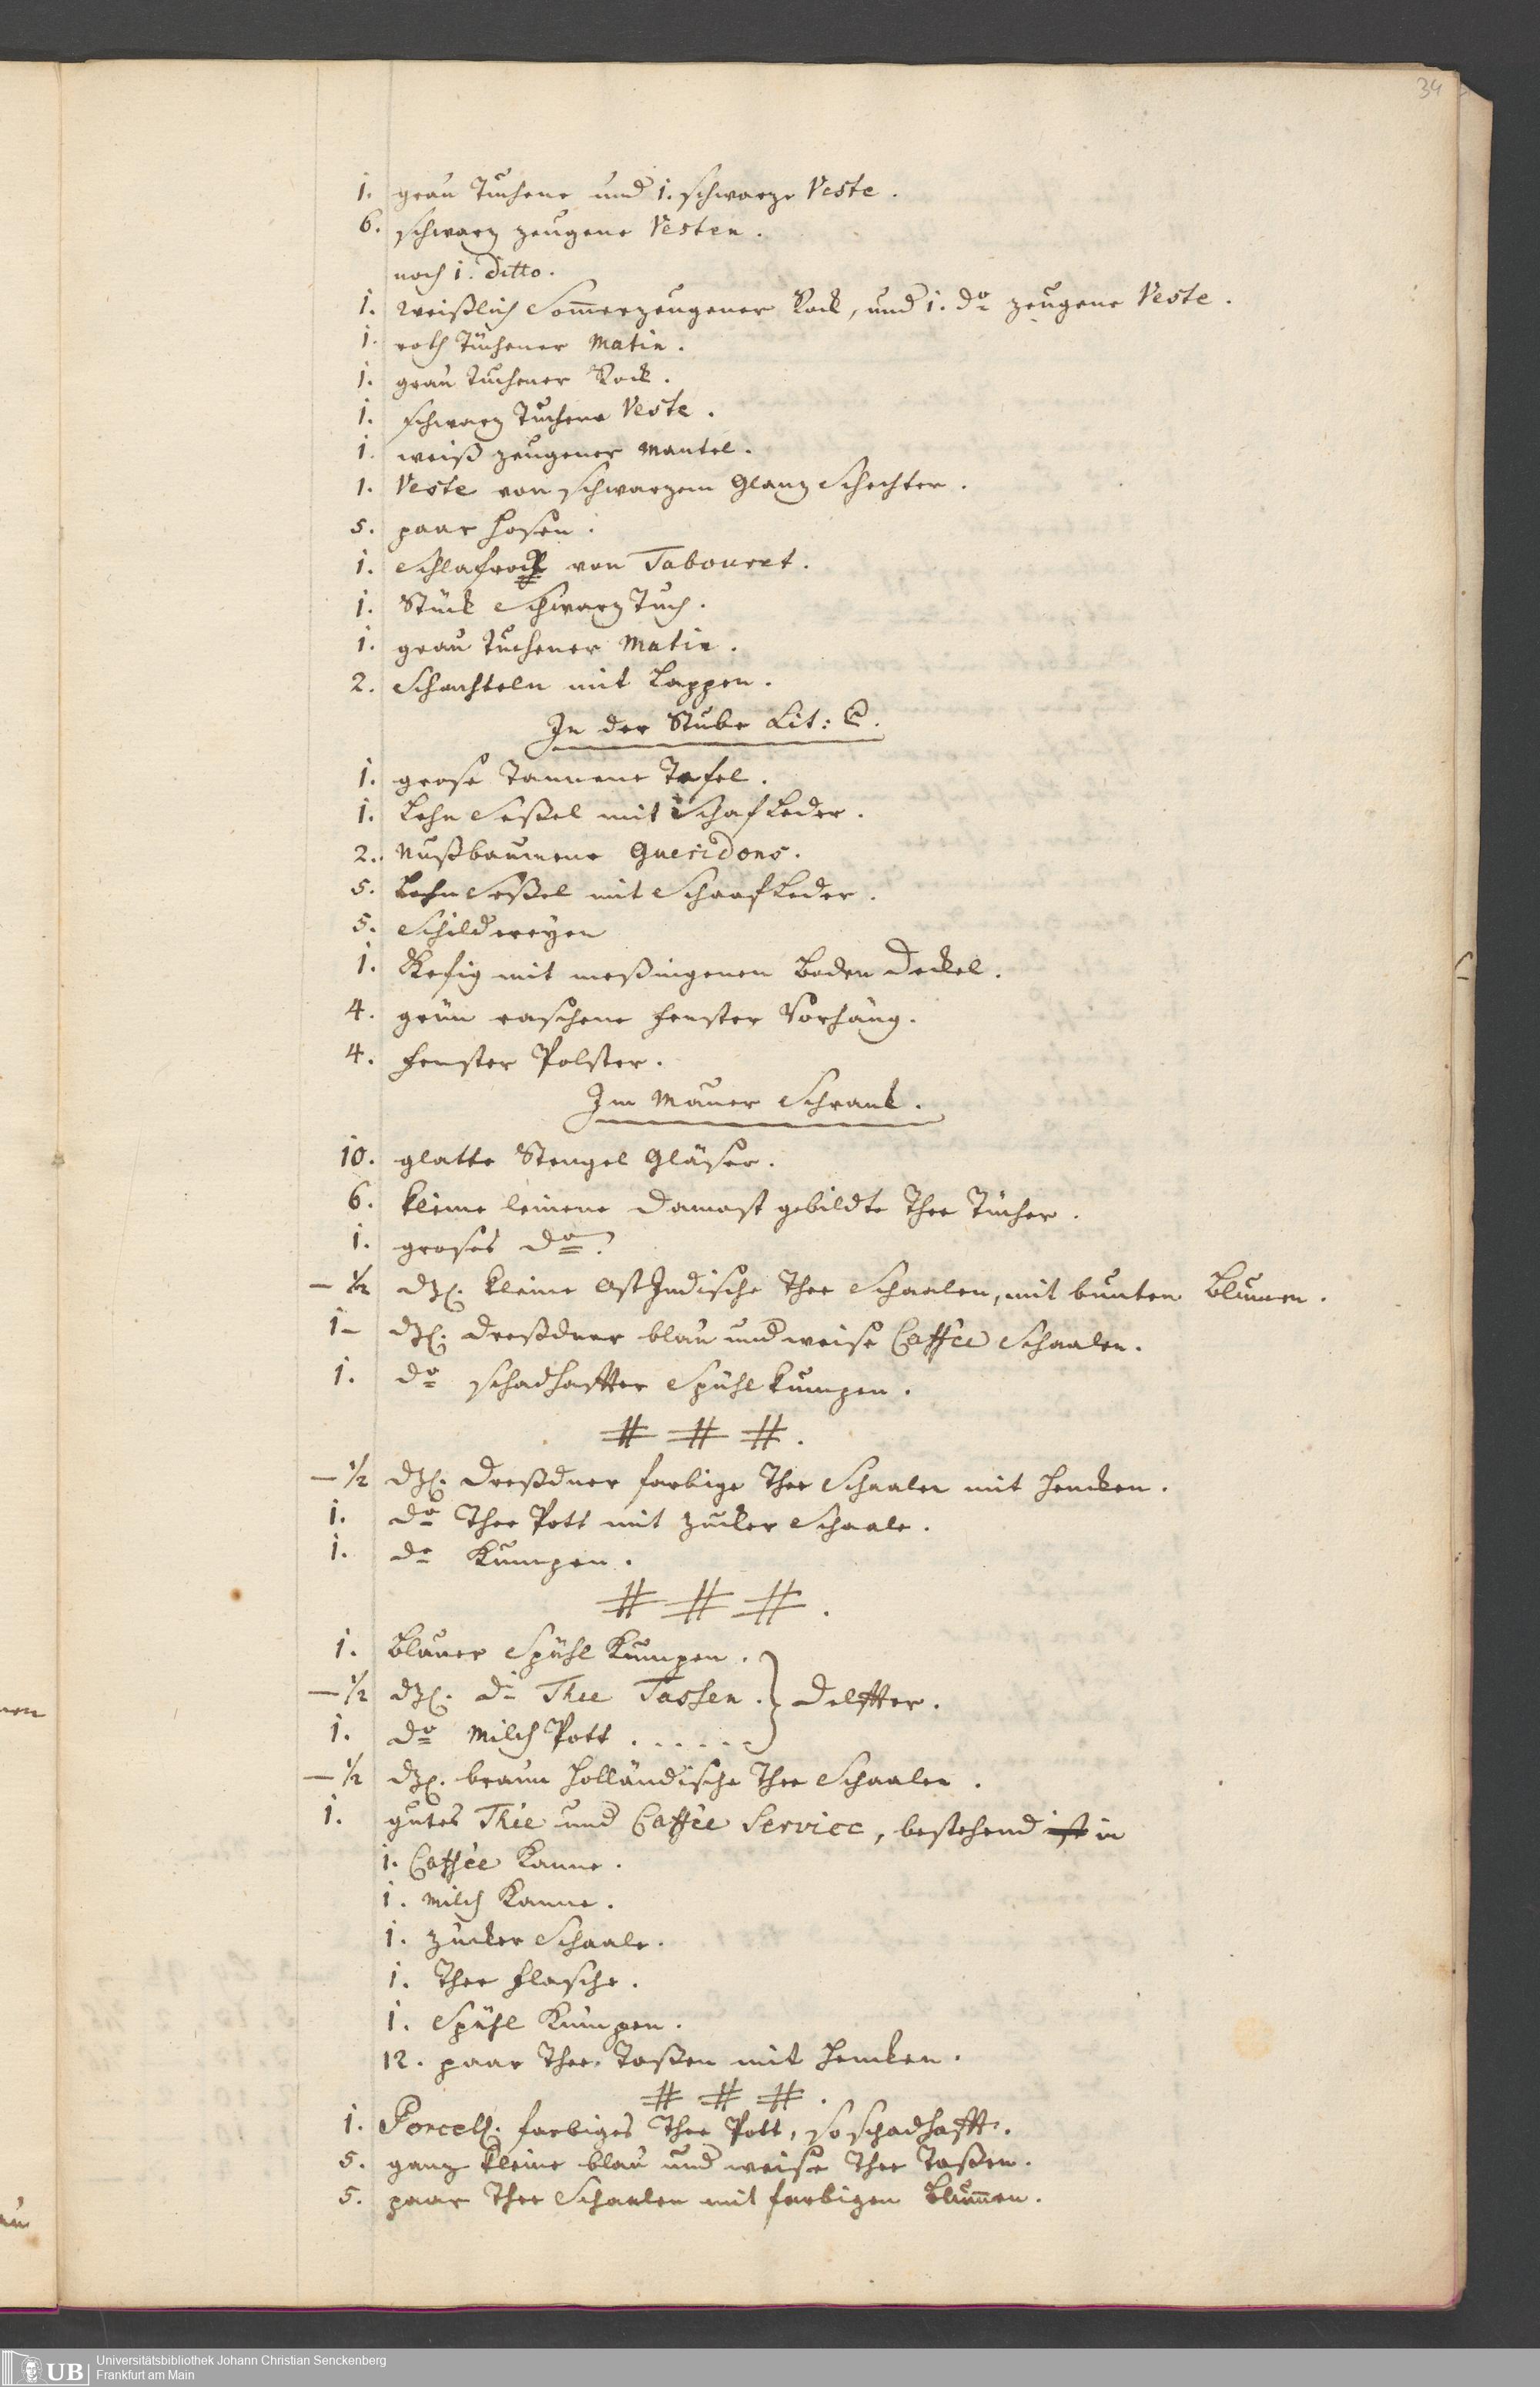 34
1. grau Tuchene und 1. schwarze Veste.
6. schwarz zeugene Vesten.
noch 1. ditto.
1. weißlich Som̅erzeugener Rock, und 1. do zeugene Veste.
1. roth Tuchener Matin.
1. grau Tuchener Rock.
1. schwarz Tuchene Veste.
1. weiß zeugener Mantel.
1. Veste von schwarzem Glanz Schechter.
5. paar Hosen.
1. Schlafrock von Tabouret.
1. Stück Schwarz Tuch.
1. grau Tuchener Matin.
2. Schachteln mit Lappen.
In der Stube Lit: C.
1. grose Tannene Tafel.
1. Lehn Seßel mit Schaf Leder.
2. Nußbaumene Gueridons.
5. Lehn Seßel mit Schaaf Leder.
5. Schildereyen
1. Kefig mit meßingenen Boden Deckel.
4. grün raschene Fenster Vorhäng.
4. Fenster Polster.
Im Mauer Schrank.
10. glatte Stengel Gläser.
6. kleine leinene Damast gebildte Thee Tücher.
1. groses do.
– ½ dz. kleine Ost Indische Thee Schaalen, mit bunten Blumen.
1– dz. Dreßdner blau und weise Caffée Schaalen.
1. do schadhaffter Spühl Kumpen.
# # #.
– ½ dz. Dreßdner farbige Thee Schaalen mit Hencken.
1. do Thee Pott mit Zucker Schaale.
1. do Kumpen.
# # #.
1. Blauer Spühl Kumpen.
– ½ dz. do Thee Tassen. } Delffter.
1. do Milch Pott . . . . .
– ½ dz. braun Holländische Thee Schaalen.
1. gutes Thée und Caffée Service, bestehend ist in
1. Caffée Kanne.
1. Milch Kanne.
1. Zucker Schaale.
1. Thee Flasche.
1. Spühl Kumpen.
12. paar Thee Taßen mit Hencken.
# # #.
1. Porcell. farbiges Thee Pott, so schadhafft.
5. ganz kleine blau und weise Thee Taßen.
5. paar Thee Schaalen mit farbigen Blum̅en.
UB Universitätsbibliothek Johann Christian Senckenberg
Frankfurt am Main